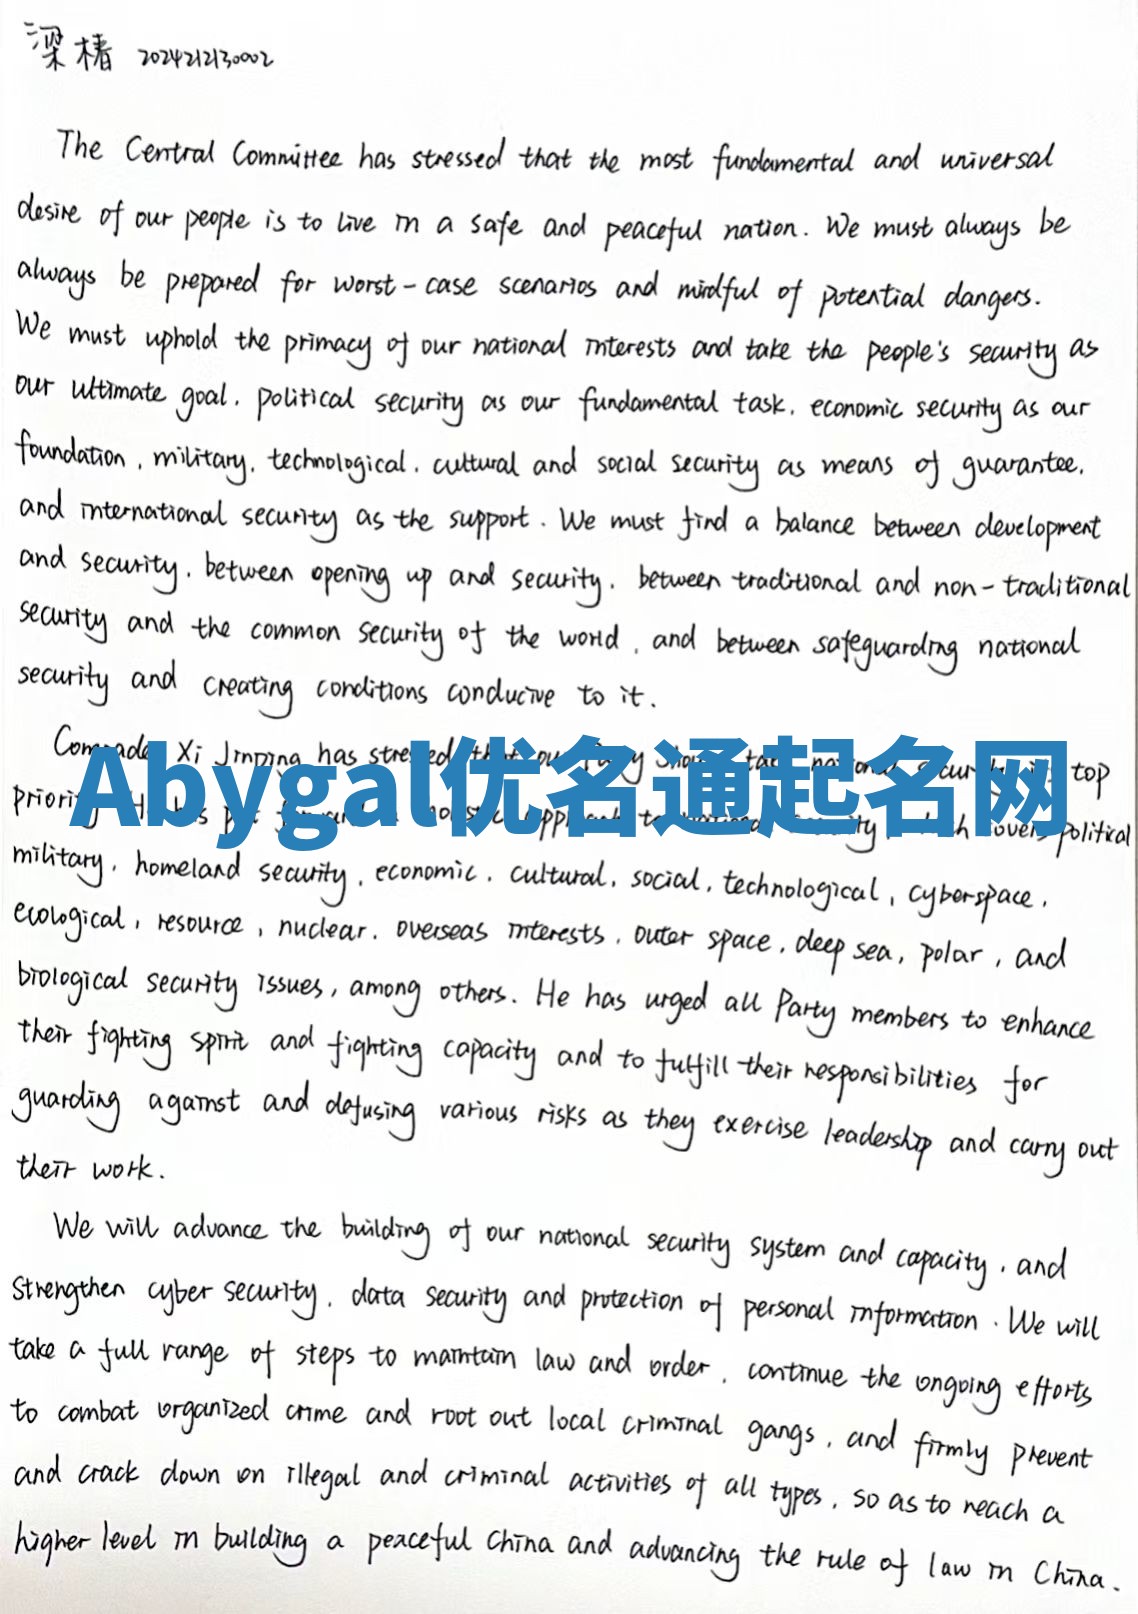 梁椿 2024212130002
The Central Committee has stressed that the most fundamental and universal
desire of our people is to live in a safe and peaceful nation. We must always be
always be prepared for worst-case scenarios and mindful of potential dangers.
We must uphold the primacy of our national interests and take the people's security as
our ultimate goal, political security as our fundamental task, economic security as our
foundation, military, technological, cultural and social security as means of guarantee,
and international security as the support. We must find a balance between development
and security, between opening up and security, between traditional and non-traditional
security and the common security of the world, and between safeguarding national
security and creating conditions conducive to it.
Comrade Xi Jinping has stressed that our Party top
Abygal优名通起名网
priority political
military, homeland security, economic, cultural, social, technological, cyberspace,
ecological, resource, nuclear, overseas interests, outer space, deep sea, polar, and
biological security issues, among others. He has urged all Party members to enhance
their fighting spirit and fighting capacity and to fulfill their responsibilities for
guarding against and defusing various risks as they exercise leadership and carry out
their work.
We will advance the building of our national security system and capacity, and
strengthen cyber security, data security and protection of personal information. We will
take a full range of steps to maintain law and order, continue the ongoing efforts
to combat organized crime and root out local criminal gangs, and firmly prevent
and crack down on illegal and criminal activities of all types, so as to reach a
higher level in building a peaceful China and advancing the rule of law in China.